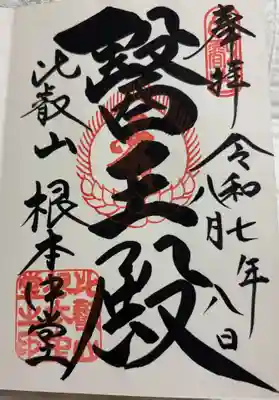 奉拝
令和七年八月八日
醫王殿
比叡山 根本中堂